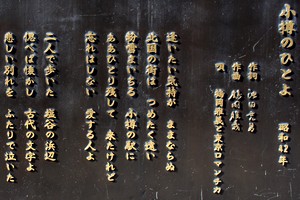 小樽のひとよ
昭和42年
作詞 池田充男
作曲 鶴岡雅義
唄 鶴岡雅義と東京ロマンチカ
逢いたい気持が ままならぬ
北国の街は つめたく遠い
粉雪まいちる 小樽の駅に
ああひとり残して 来たけれど
忘れはしない 愛する人よ
二人で歩いた 塩谷の浜辺
偲べば懐かし 古代の文字よ
悲しい別れを ふたりで泣いた